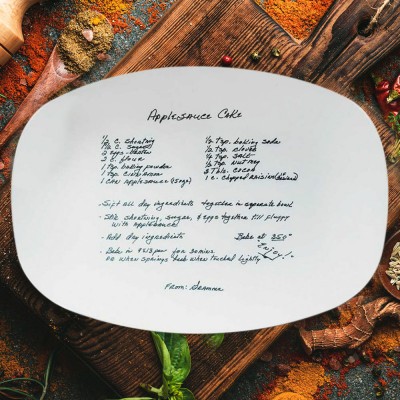 Applesauce Cake
1/2 c. shortning
2 eggs beaten
2 c. flour
1 tsp. baking powder
1 tsp. cinnamon
1 c applesauce
1/2 tsp. baking soda
1/2 tsp. cloves
1/4 tsp. salt
1/2 tsp. nutmeg
2 Tbls. cocoa
1 c. chopped raisins
- Sift all dry ingredients together in separate bowl
- Stir shortning, sugar, & eggs together till fluffy
with applesauce
- Add dry ingredients
Bake at 350°
- Bake in 9x13 pan for
or when springs back when touched lightly
Enjoy!
From: